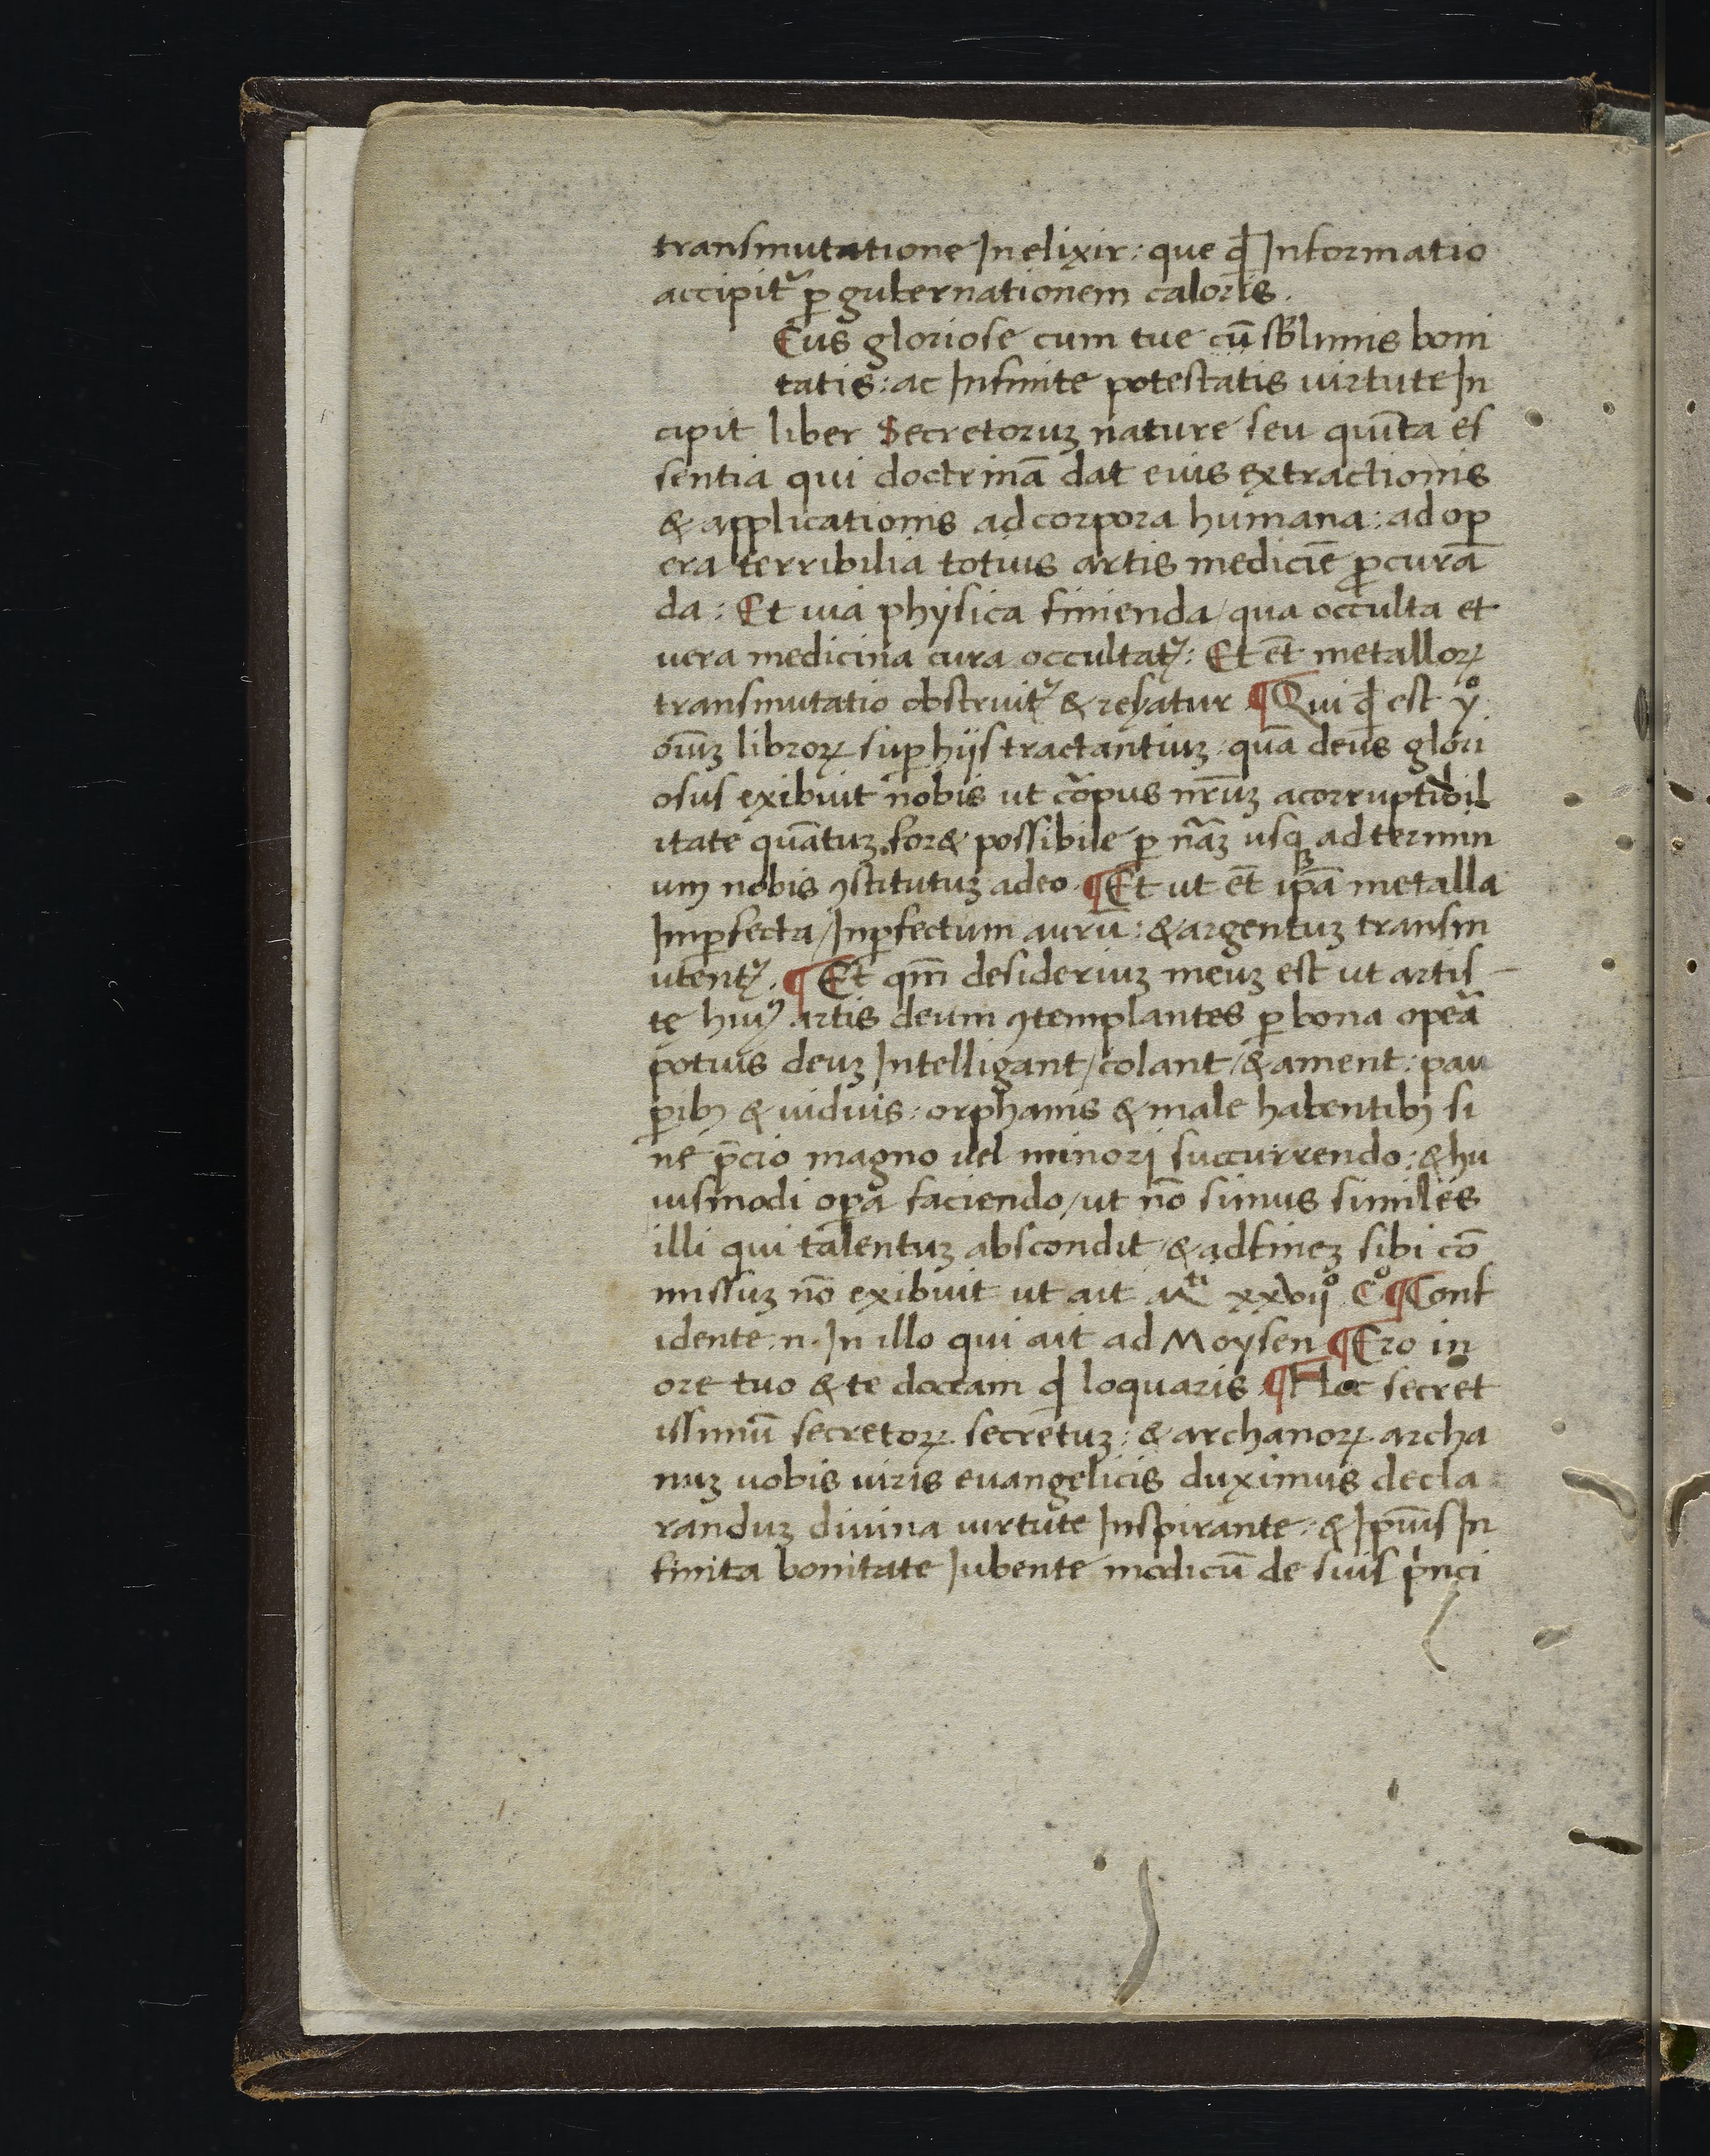 transmutatione In elixir: que ꝙ Informatio
accipit᷑ ꝑ gubernationem caloris.
Eus gloriose cum tue cū sblimis boni
tatis: ac Infinite potestatis uirtute In
cipit liber Secretoruꝫ nature seu quīta es
sentia qui doctrinā dat eius extractionis
& applicationis ad corpora humana: ad op
era terribilia totius artis medicīe ꝓcurā
da: Et uia physica finienda / qua occulta et
uera medicina cura occultat᷑: Et ēt metalloꝝ
transmutatio obstruit᷑ & reseratur ¶ Qui ꝙ est yͦ
oīuꝫ libroꝝ sup hijs tractantiuꝫ: quā deus glori
osus exibuit nobis ut corpus nr̄uꝫ a corruptibil
itate quātuꝫ foret possibile ꝑ nāꝫ usqꝫ ad termin
um nobis ꝯstitutuꝫ a deo. ¶ Et ut ēt ip̄a metalla
Imꝑfecta / In ꝑfectum aurū: & argentuꝫ transm
utent᷑. ¶ Et qm̄ desideriuꝫ meuꝫ est ut artis
te huiꝰ artis deum ꝯtemplantes ꝑ bona opeā
potius deuꝫ Intelligant / colant / & ament: pau
ꝑibꝫ & uiduis: orphanis & male habentibꝫ si
ne p̄cio magno uel minori succurrendo: & hu
iusmodi oꝑa faciendo / ut nō simus similes
illi qui talentuꝫ abscondit / & ad fineꝫ sibi cō
missuꝫ nō exibuit ut ait xxvijͦ Cͦ ¶ Conf
idente .n. In illo qui ait ad Moysen ¶ Ero in
ore tuo & te doceam ꝙ loquaris ¶ Hoc secret
issimū secretoꝝ secretuꝫ: & archanoꝝ archa
nuꝫ uobis uiris euangelicis duximus decla
randuꝫ diuina uirtute Inspirante: & Ip̄ius In
finita bonitate Iubente modicū de suis pͥnci